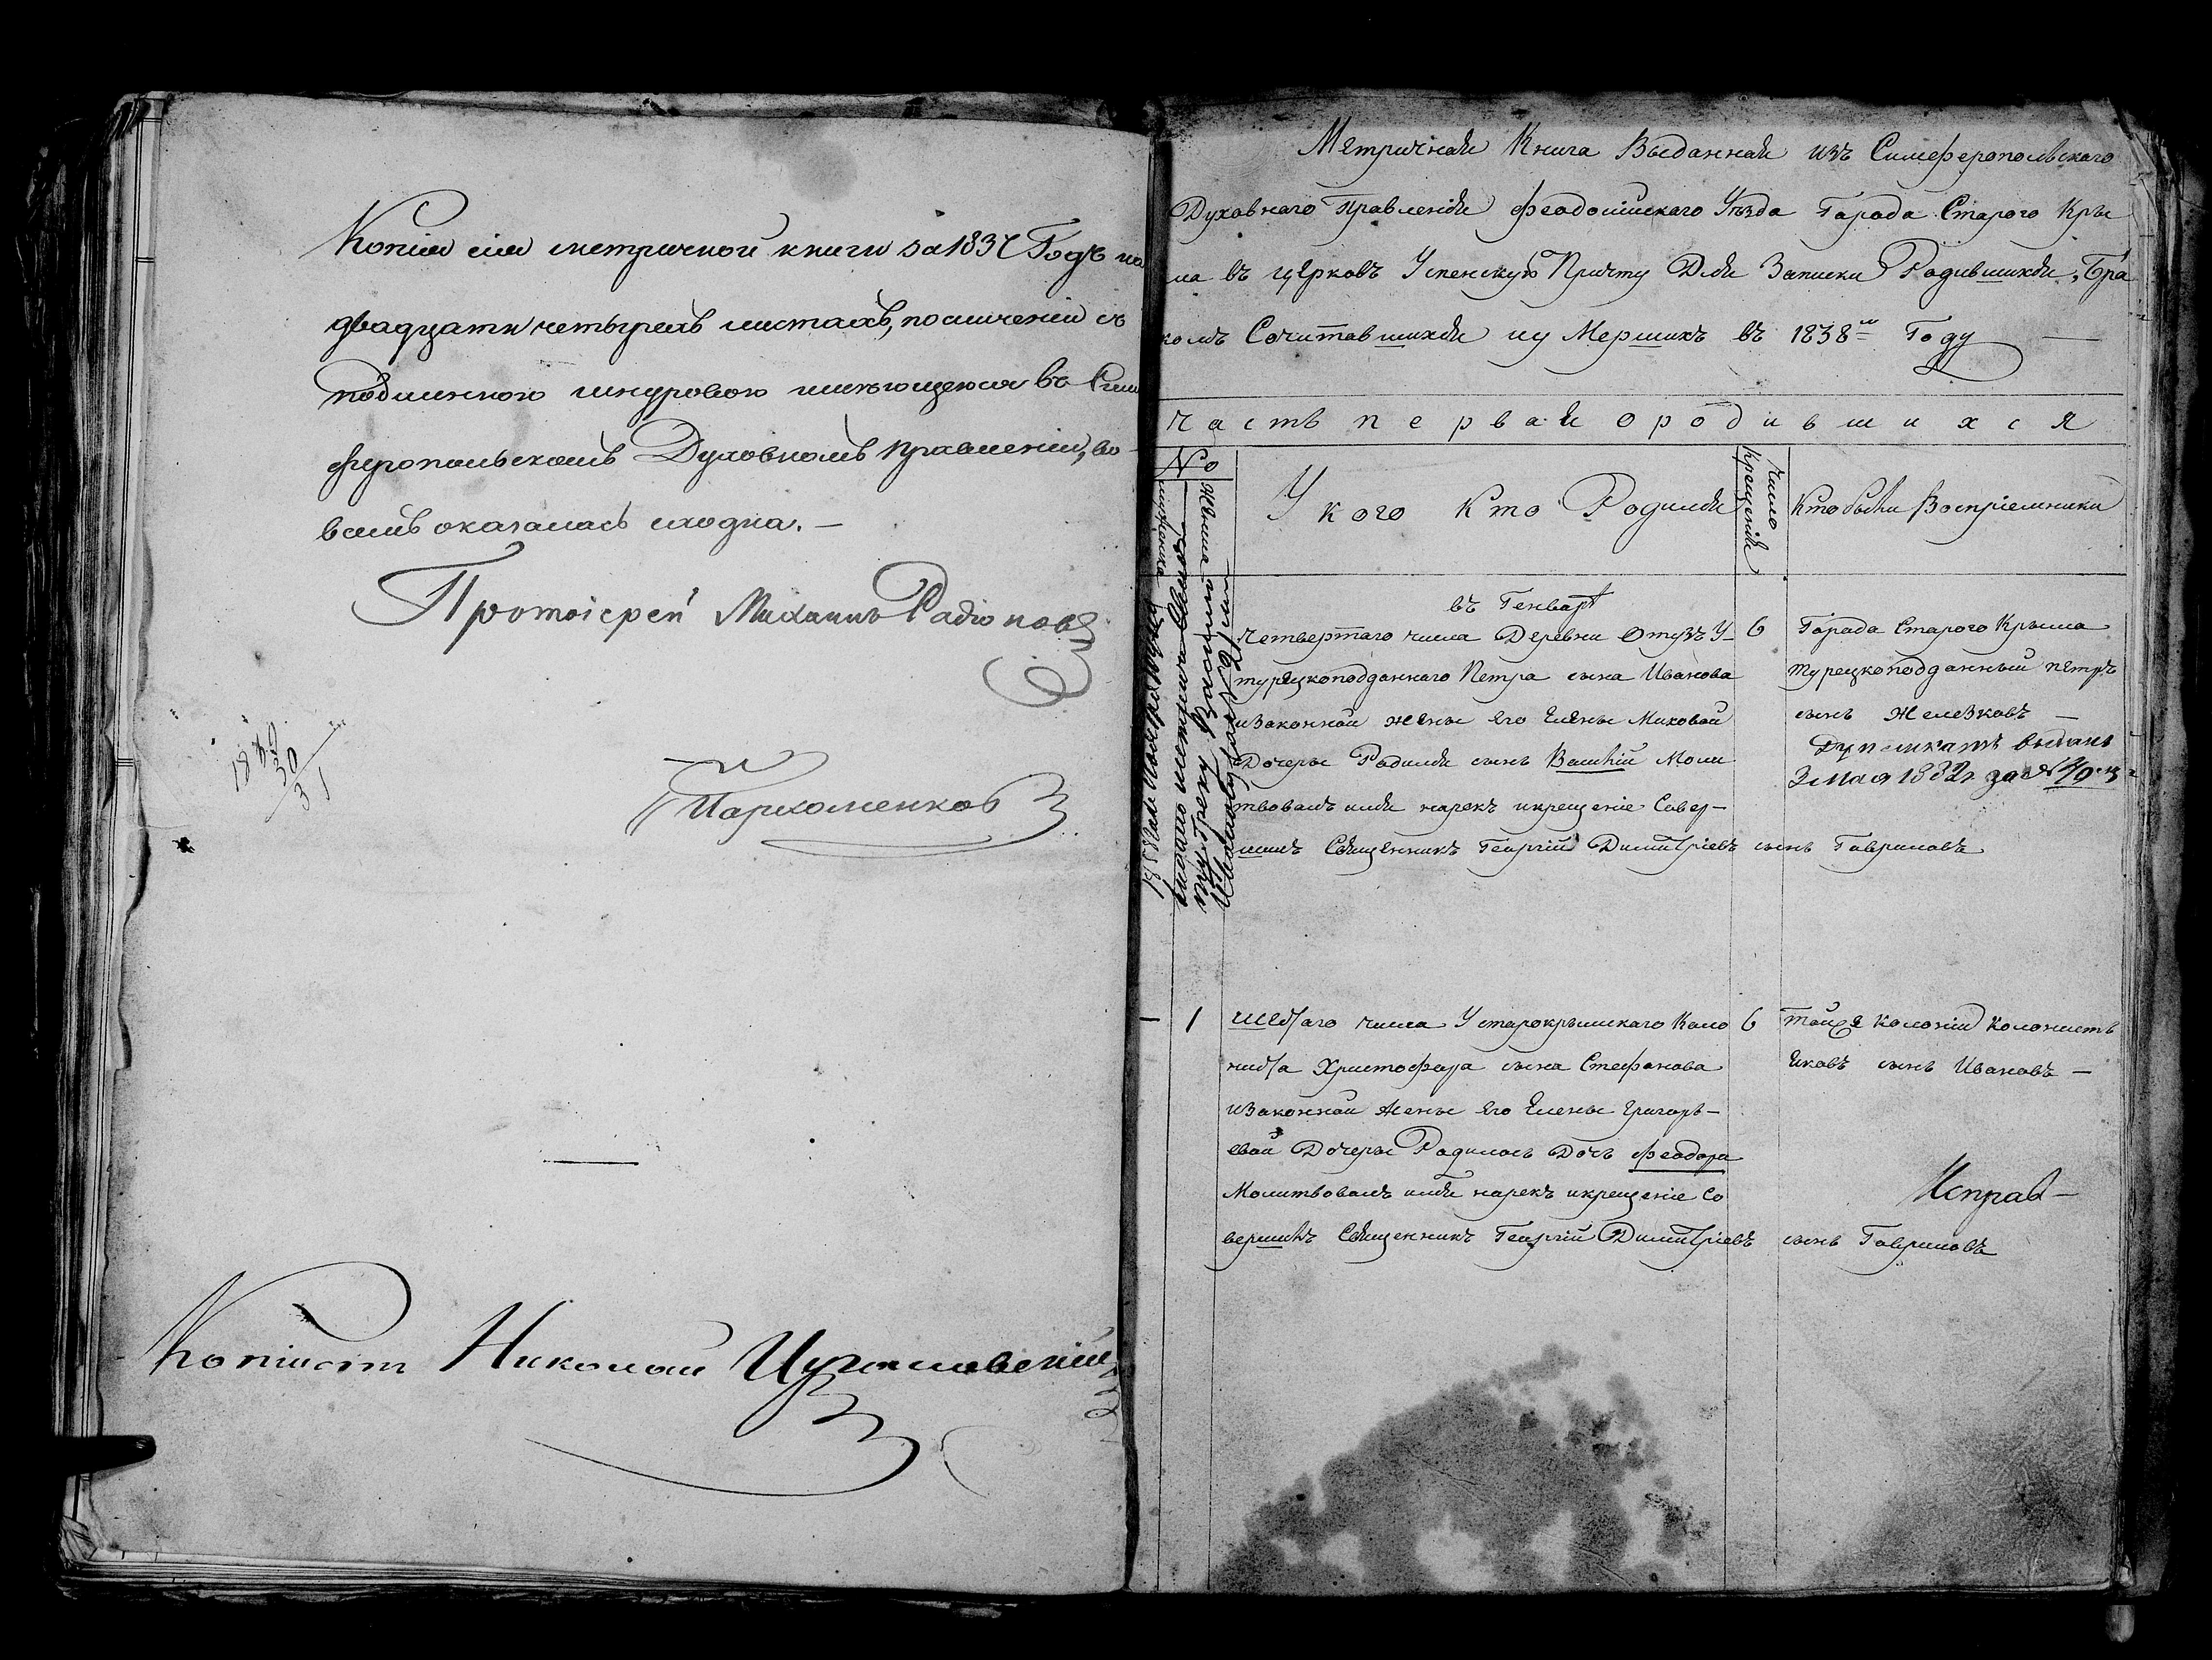 Копія сія метрической книги за 1837 Годъ на
двадцати четырехъ листахъ, по сличеніи съ
подлинною шнуровою имеющеюся въ Сим
феропольскомъ Духовномъ Правленіи, во
всемъ оказалась сходна. —
Протоіерей Михаилъ Радіоновъ
Пархоменковъ
30
31
Копіистъ Николай
Метричная Книга Выданная изъ Симферопольскаго
Духовнаго Правленія Феодосійскаго Уѣзда Города Старого Кры
ма въ церковъ Успенскую Причту Для Записки Родившихся, Бра
комъ Сочитавшихся и уМершихъ въ 1838м Году —
Часть первая о родившихся
№
мужеска
женска
У кого кто Родился
Число крещенія
Кто были Воспріемники
въ Генварѣ
Четвертаго числа Деревни Отузъ У
турецкоподданнаго Петра сына Иванова
изаконной жены его Елены Миховой
Дочеры Родился сынъ Васілій Моли
твовалъ имя нарекъ икрещеніе Совер-
шилъ Священникъ Георгій Димитріевъ сынъ Гавриловъ
6
Города Старого Крыма
турецкоподданный петръ
сынъ Железковъ —
Дупликатъ выданъ
3 мая 1882 г за №
1
Шестаго числа У старокрымскаго Коло
ниста Христофора сына Стефанова
изаконной жены его Елены Григорь-
евой Дочеры Родилось Дочь Феодора
Молитвовалъ имя нарекъ икрещеніе Со
вершилъ Священникъ Георгій Димитріевъ сынъ Гавриловъ
6
Тойже колоніи колонистъ
Яковъ сынъ Ивановъ —
Исправ—